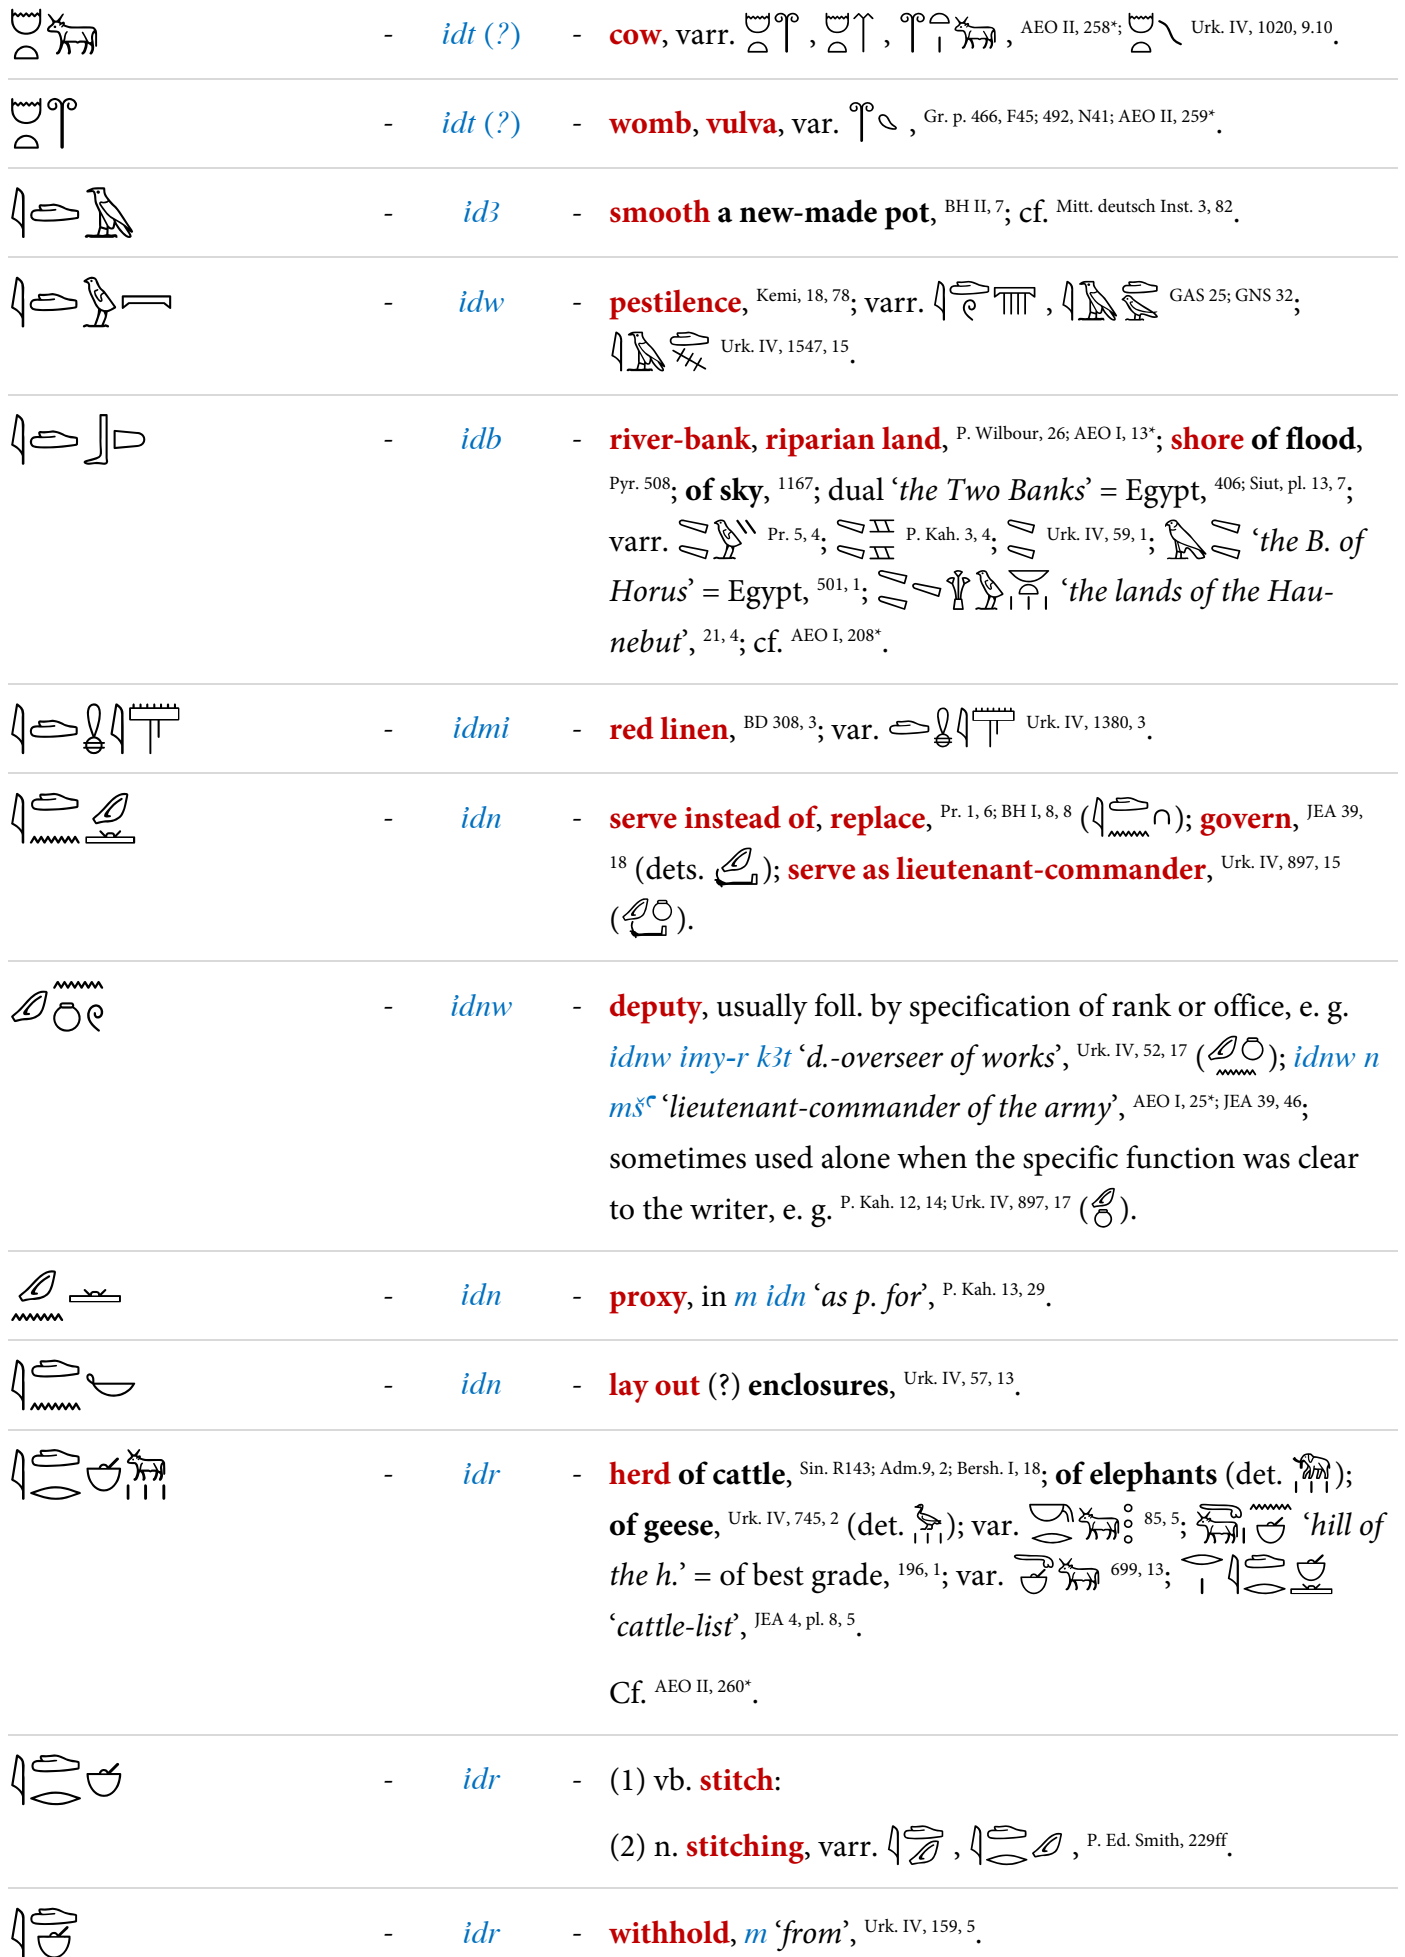 𓈞𓏏𓃒 - ỉdt (?) - cow, varr. 𓈞𓏏𓄞, 𓈞𓏏, 𓄞𓏏𓏤𓃒, AEO II, 258*; 𓈞𓏏 Urk. IV, 1020, 9.10.
𓈞𓏏𓄞 - ỉdt (?) - womb, vulva, var. 𓄞, Gr. p. 466, F45; 492, N41; AEO II, 259*.
𓇋𓂧𓄿 - ỉdꜣ - smooth a new-made pot, BH II, 7; cf. Mitt. deutsch Inst. 3, 82.
𓇋𓂧𓅱𓇯 - ỉdw - pestilence, Kemi, 18, 78; varr. 𓇋𓂧𓏲, 𓇋𓄿𓂧𓅪 GAS 25; GNS 32;
𓇋𓄿𓂧 Urk. IV, 1547, 15.
𓇋𓂧𓃀 - ỉdb - river-bank, riparian land, P. Wilbour, 26; AEO I, 13*; shore of flood,
Pyr. 508; of sky, 1167; dual ‘the Two Banks’ = Egypt, 406; Siut, pl. 13, 7;
varr. Pr. 5, 4; P. Kah. 3, 4; Urk. IV, 59, 1; ‘the B. of
Horus’ = Egypt, 501, 1; ‘the lands of the Hau-
nebut’, 21, 4; cf. AEO I, 208*.
𓇋𓂧𓇋 - ỉdmỉ - red linen, BD 308, 3; var. Urk. IV, 1380, 3.
𓇋𓂧𓈖𓄔𓏛 - ỉdn - serve instead of, replace, Pr. 1, 6; BH I, 8, 8 (𓇋𓂧𓈖𓎆); govern, JEA 39,
18 (dets. ); serve as lieutenant-commander, Urk. IV, 897, 15
( ).
𓄔𓈖𓏌𓏲 - ỉdnw - deputy, usually foll. by specification of rank or office, e. g.
ỉdnw ỉmy-r kꜣt ‘d.-overseer of works’, Urk. IV, 52, 17 (𓄔𓏌𓈖); ỉdnw n
mšꜥ ‘lieutenant-commander of the army’, AEO I, 25*; JEA 39, 46;
sometimes used alone when the specific function was clear
to the writer, e. g. P. Kah. 12, 14; Urk. IV, 897, 17 (𓄔𓏌).
𓄔𓈖𓏛 - ỉdn - proxy, in m ỉdn ‘as p. for’, P. Kah. 13, 29.
𓇋𓂧𓈖 - ỉdn - lay out (?) enclosures, Urk. IV, 57, 13.
𓇋𓂧𓂋𓃒𓏥 - ỉdr - herd of cattle, Sin. R143; Adm.9, 2; Bersh. I, 18; of elephants (det. 𓃰𓏥);
of geese, Urk. IV, 745, 2 (det. 𓅬𓏥); var. 85, 5; ‘hill of
the h.’ = of best grade, 196, 1; var. 699, 13;
‘cattle-list’, JEA 4, pl. 8, 5.
Cf. AEO II, 260*.
𓇋𓂧𓂋 - ỉdr - (1) vb. stitch:
(2) n. stitching, varr. 𓇋𓂧𓄔, 𓇋𓂧𓂋𓄔, P. Ed. Smith, 229ff.
𓇋𓂧 - ỉdr - withhold, m ‘from’, Urk. IV, 159, 5.